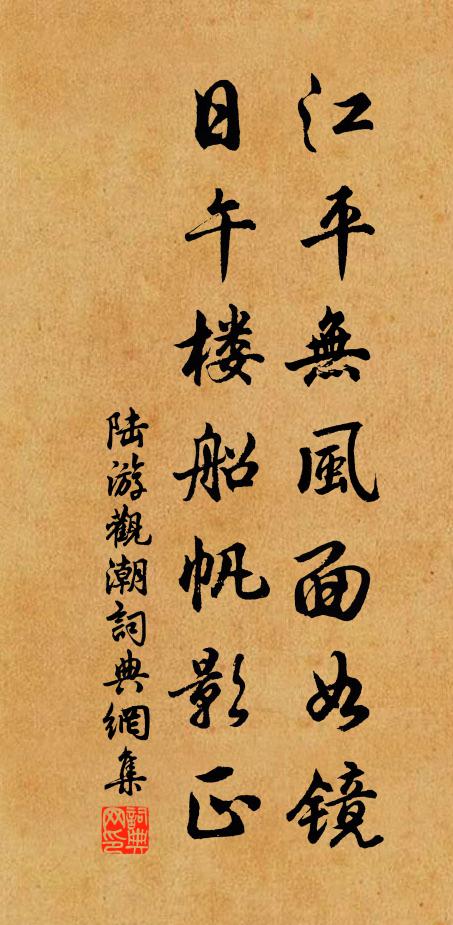 江平無風面如镜
日午楼船帆影正
陆游觀潮詞典網集
詞典网印